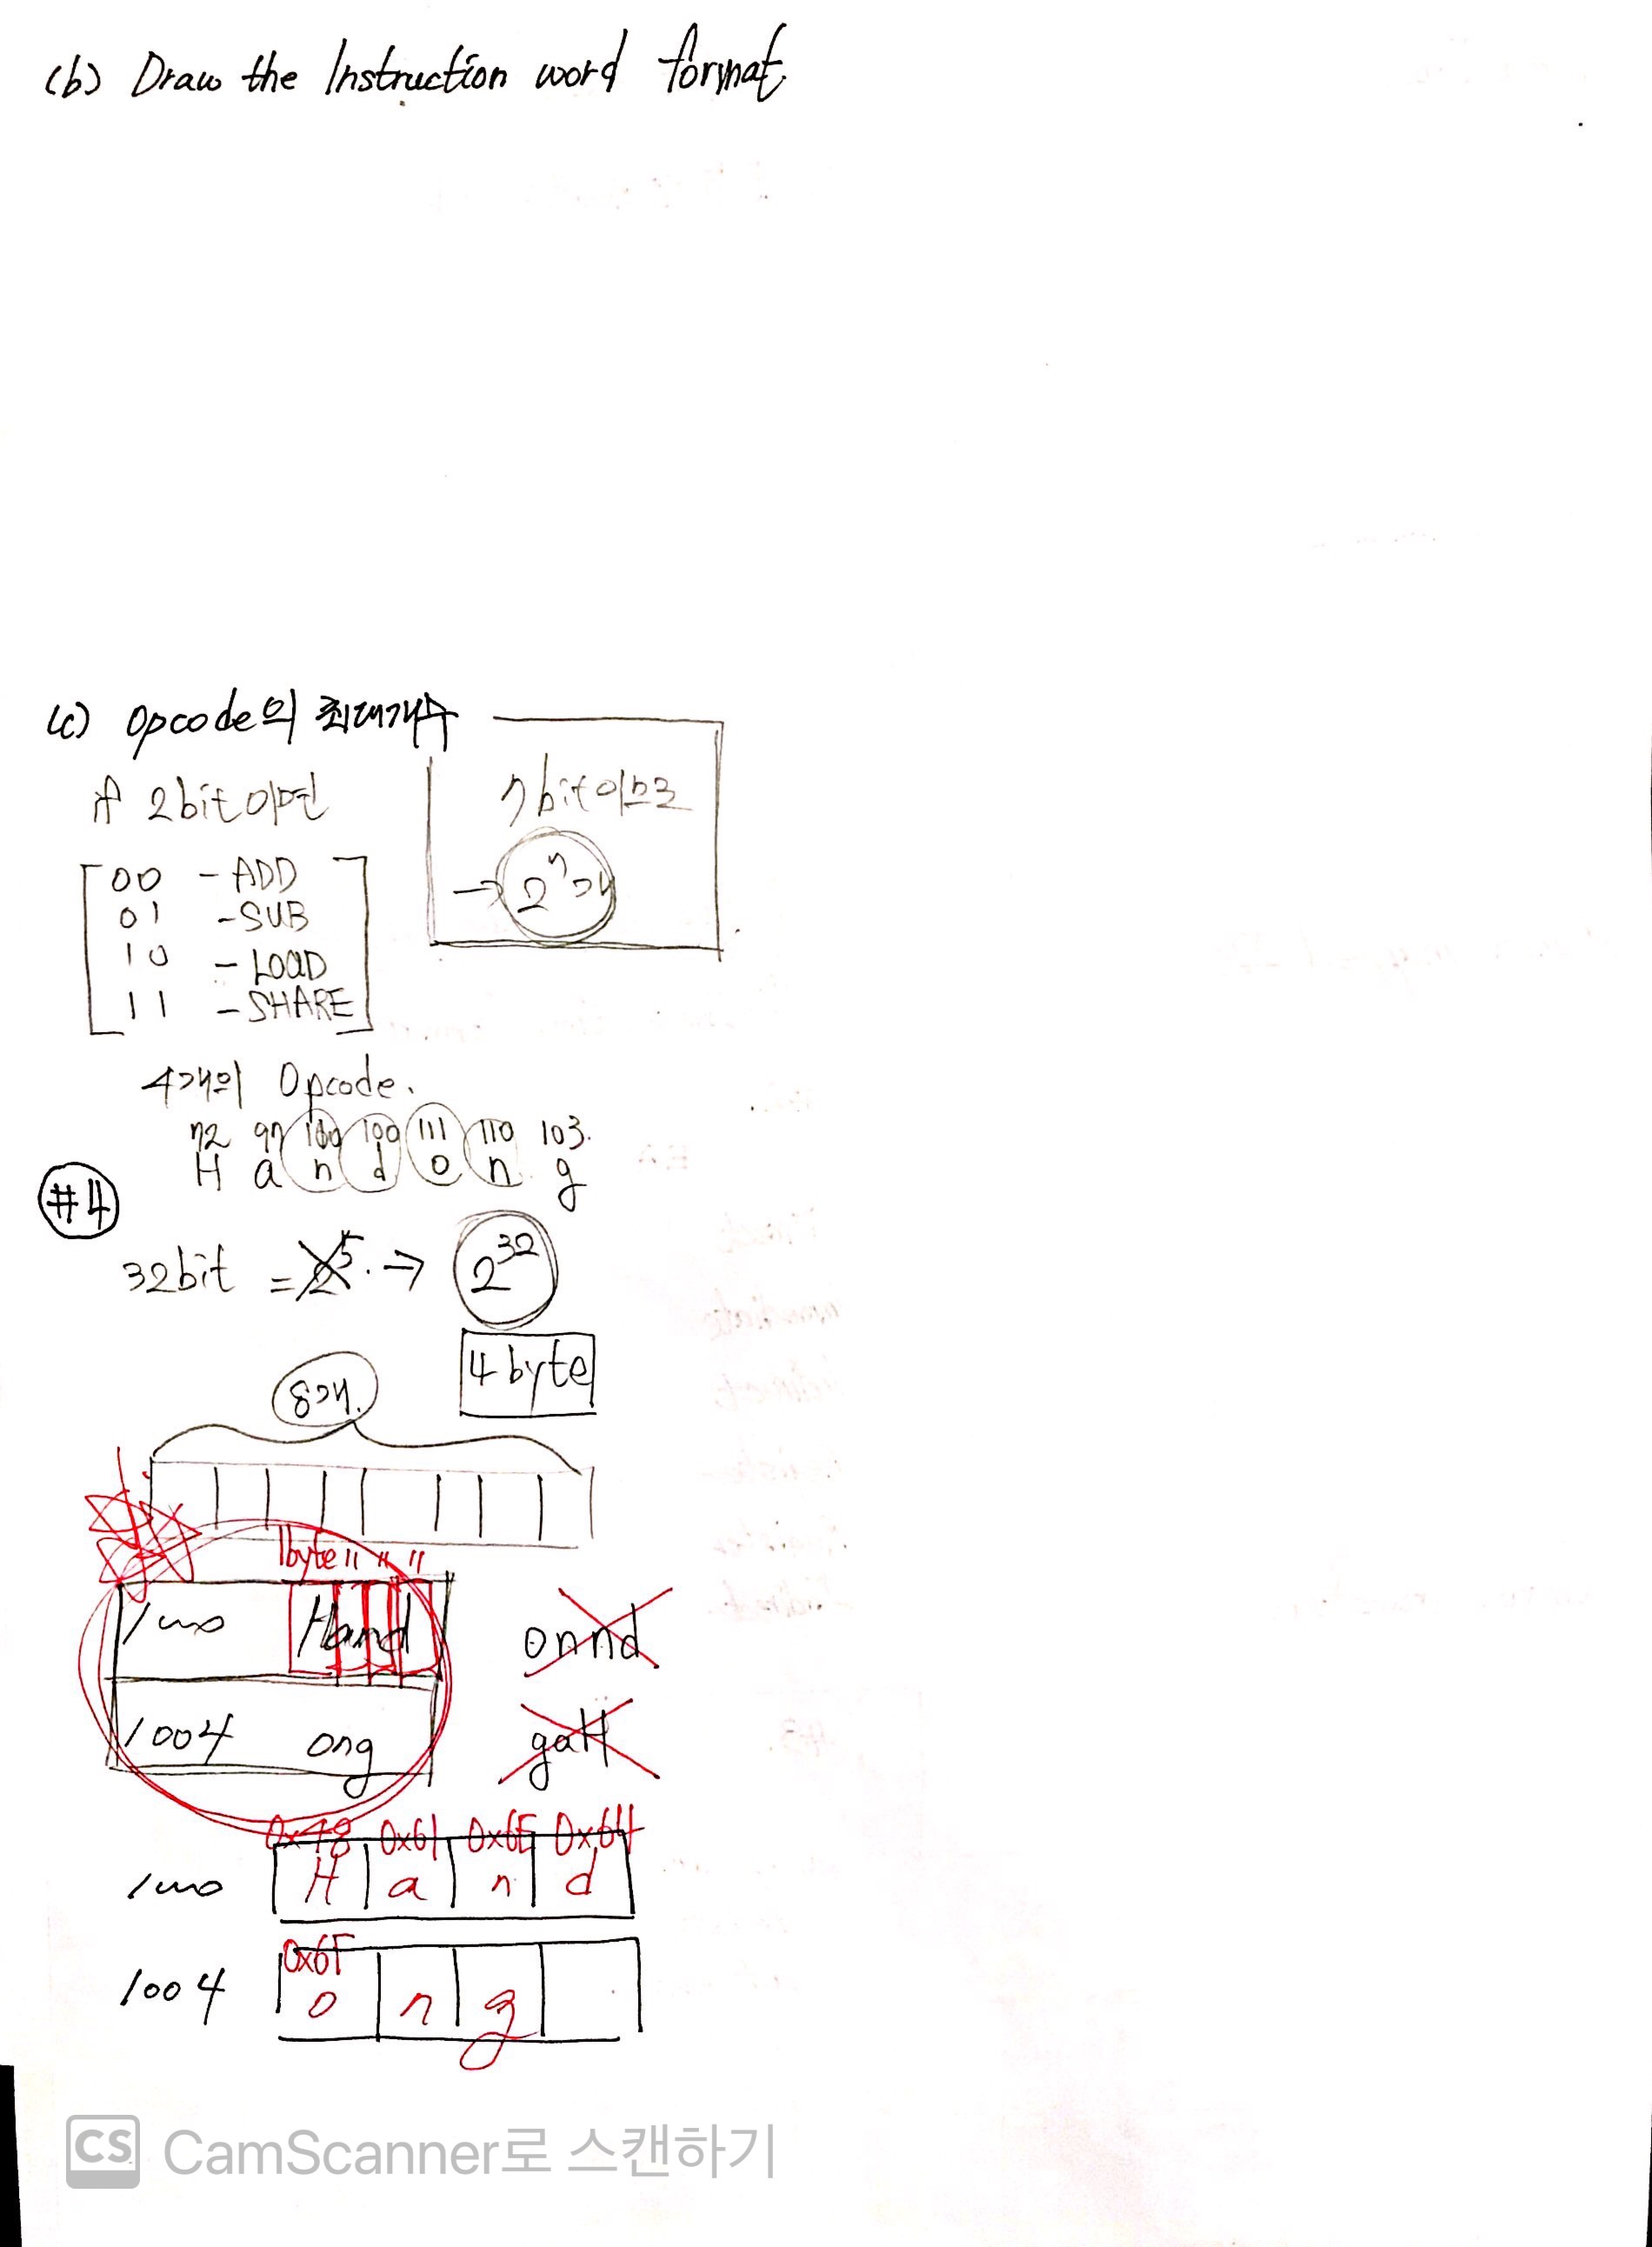 (b) Draw the Instruction word format.
(c) Opcode의 최대개수
if 2bit 이면
7bit 이므로
→ 2⁷개
00 - ADD
01 - SUB
10 - LOAD
11 - SHARE
4개의 Opcode.
72 97 100 111 110 103.
H a n d o n g
#4
32bit = 2⁵. → 2³²
4 byte
8개.
1byte " " "
1000 Hand
onnd
1004 ong
gaH
0x48 0x61 0x6E 0x64
1000 H a n d
0x6F
1004 o n g
CS CamScanner로 스캔하기